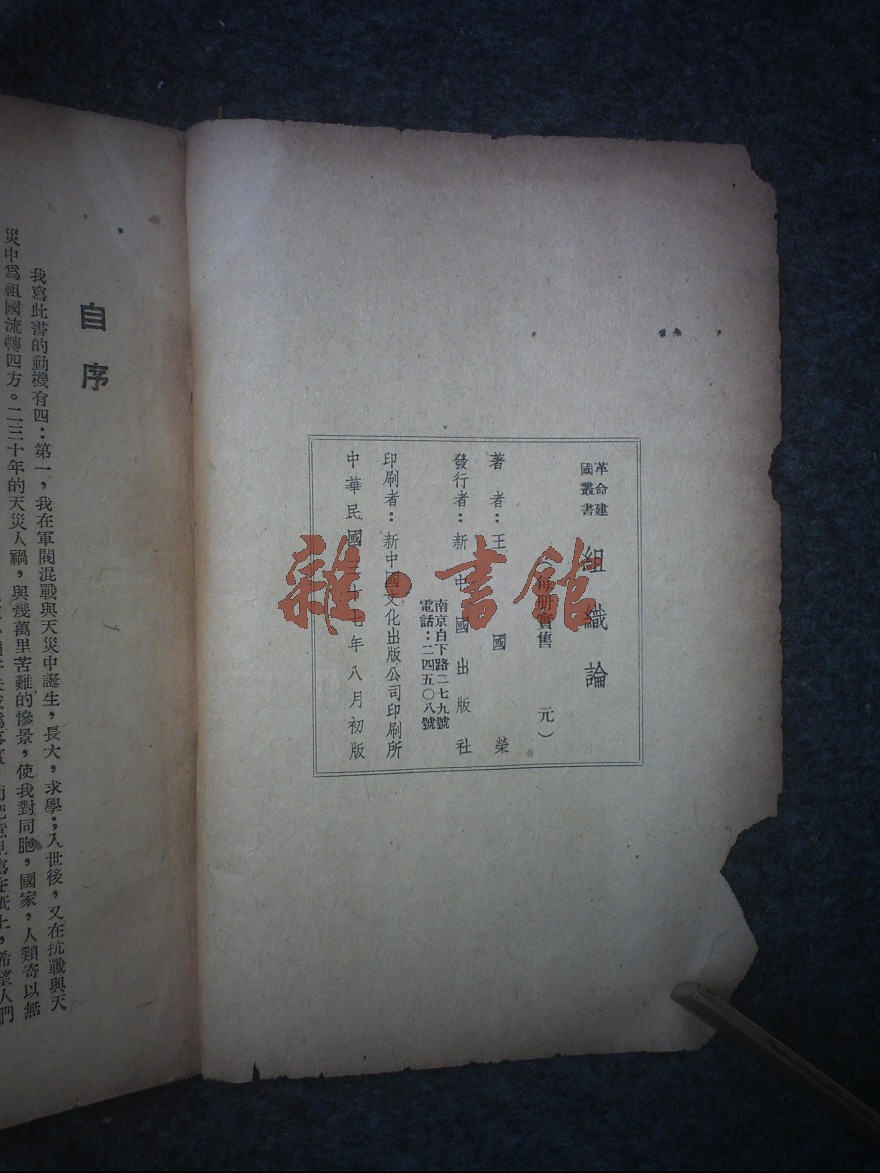 革命建
國叢書
組織論
（每册實售　　元）
著者：王國榮
發行者：新中國出版社
南京白下路二七九號
電話：二四五〇八號
印刷者：新中國文化出版公司印刷所
中華民國三十七年八月初版
自序
我寫此書的動機有四：第一，我在軍閥混戰與天災中誕生，長大，求學；入世後，又在抗戰與天
災中爲祖國流轉四方。二三十年的天災人禍，與幾萬里苦難的慘景，使我對同胞，國家，人類寄以無
寫在紙上，希望人們
雜·書館